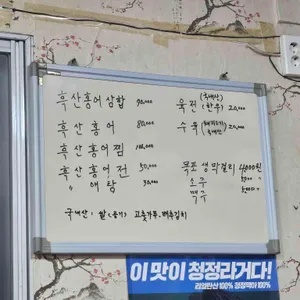 흑산홍어삼합
흑산홍어 80,000
흑산홍어찜
흑산홍어전 50,000
〃 애탕 30,000
육전 (국내산) (한우) 20,000
수육 국내산 20,000
목포 생막걸리 4,000원
소주
맥주
국내산: 쌀(공기) 고춧가루. 배추김치
이 맛이 청정라거다!
리얼탄산 100% 청정맥아 100%